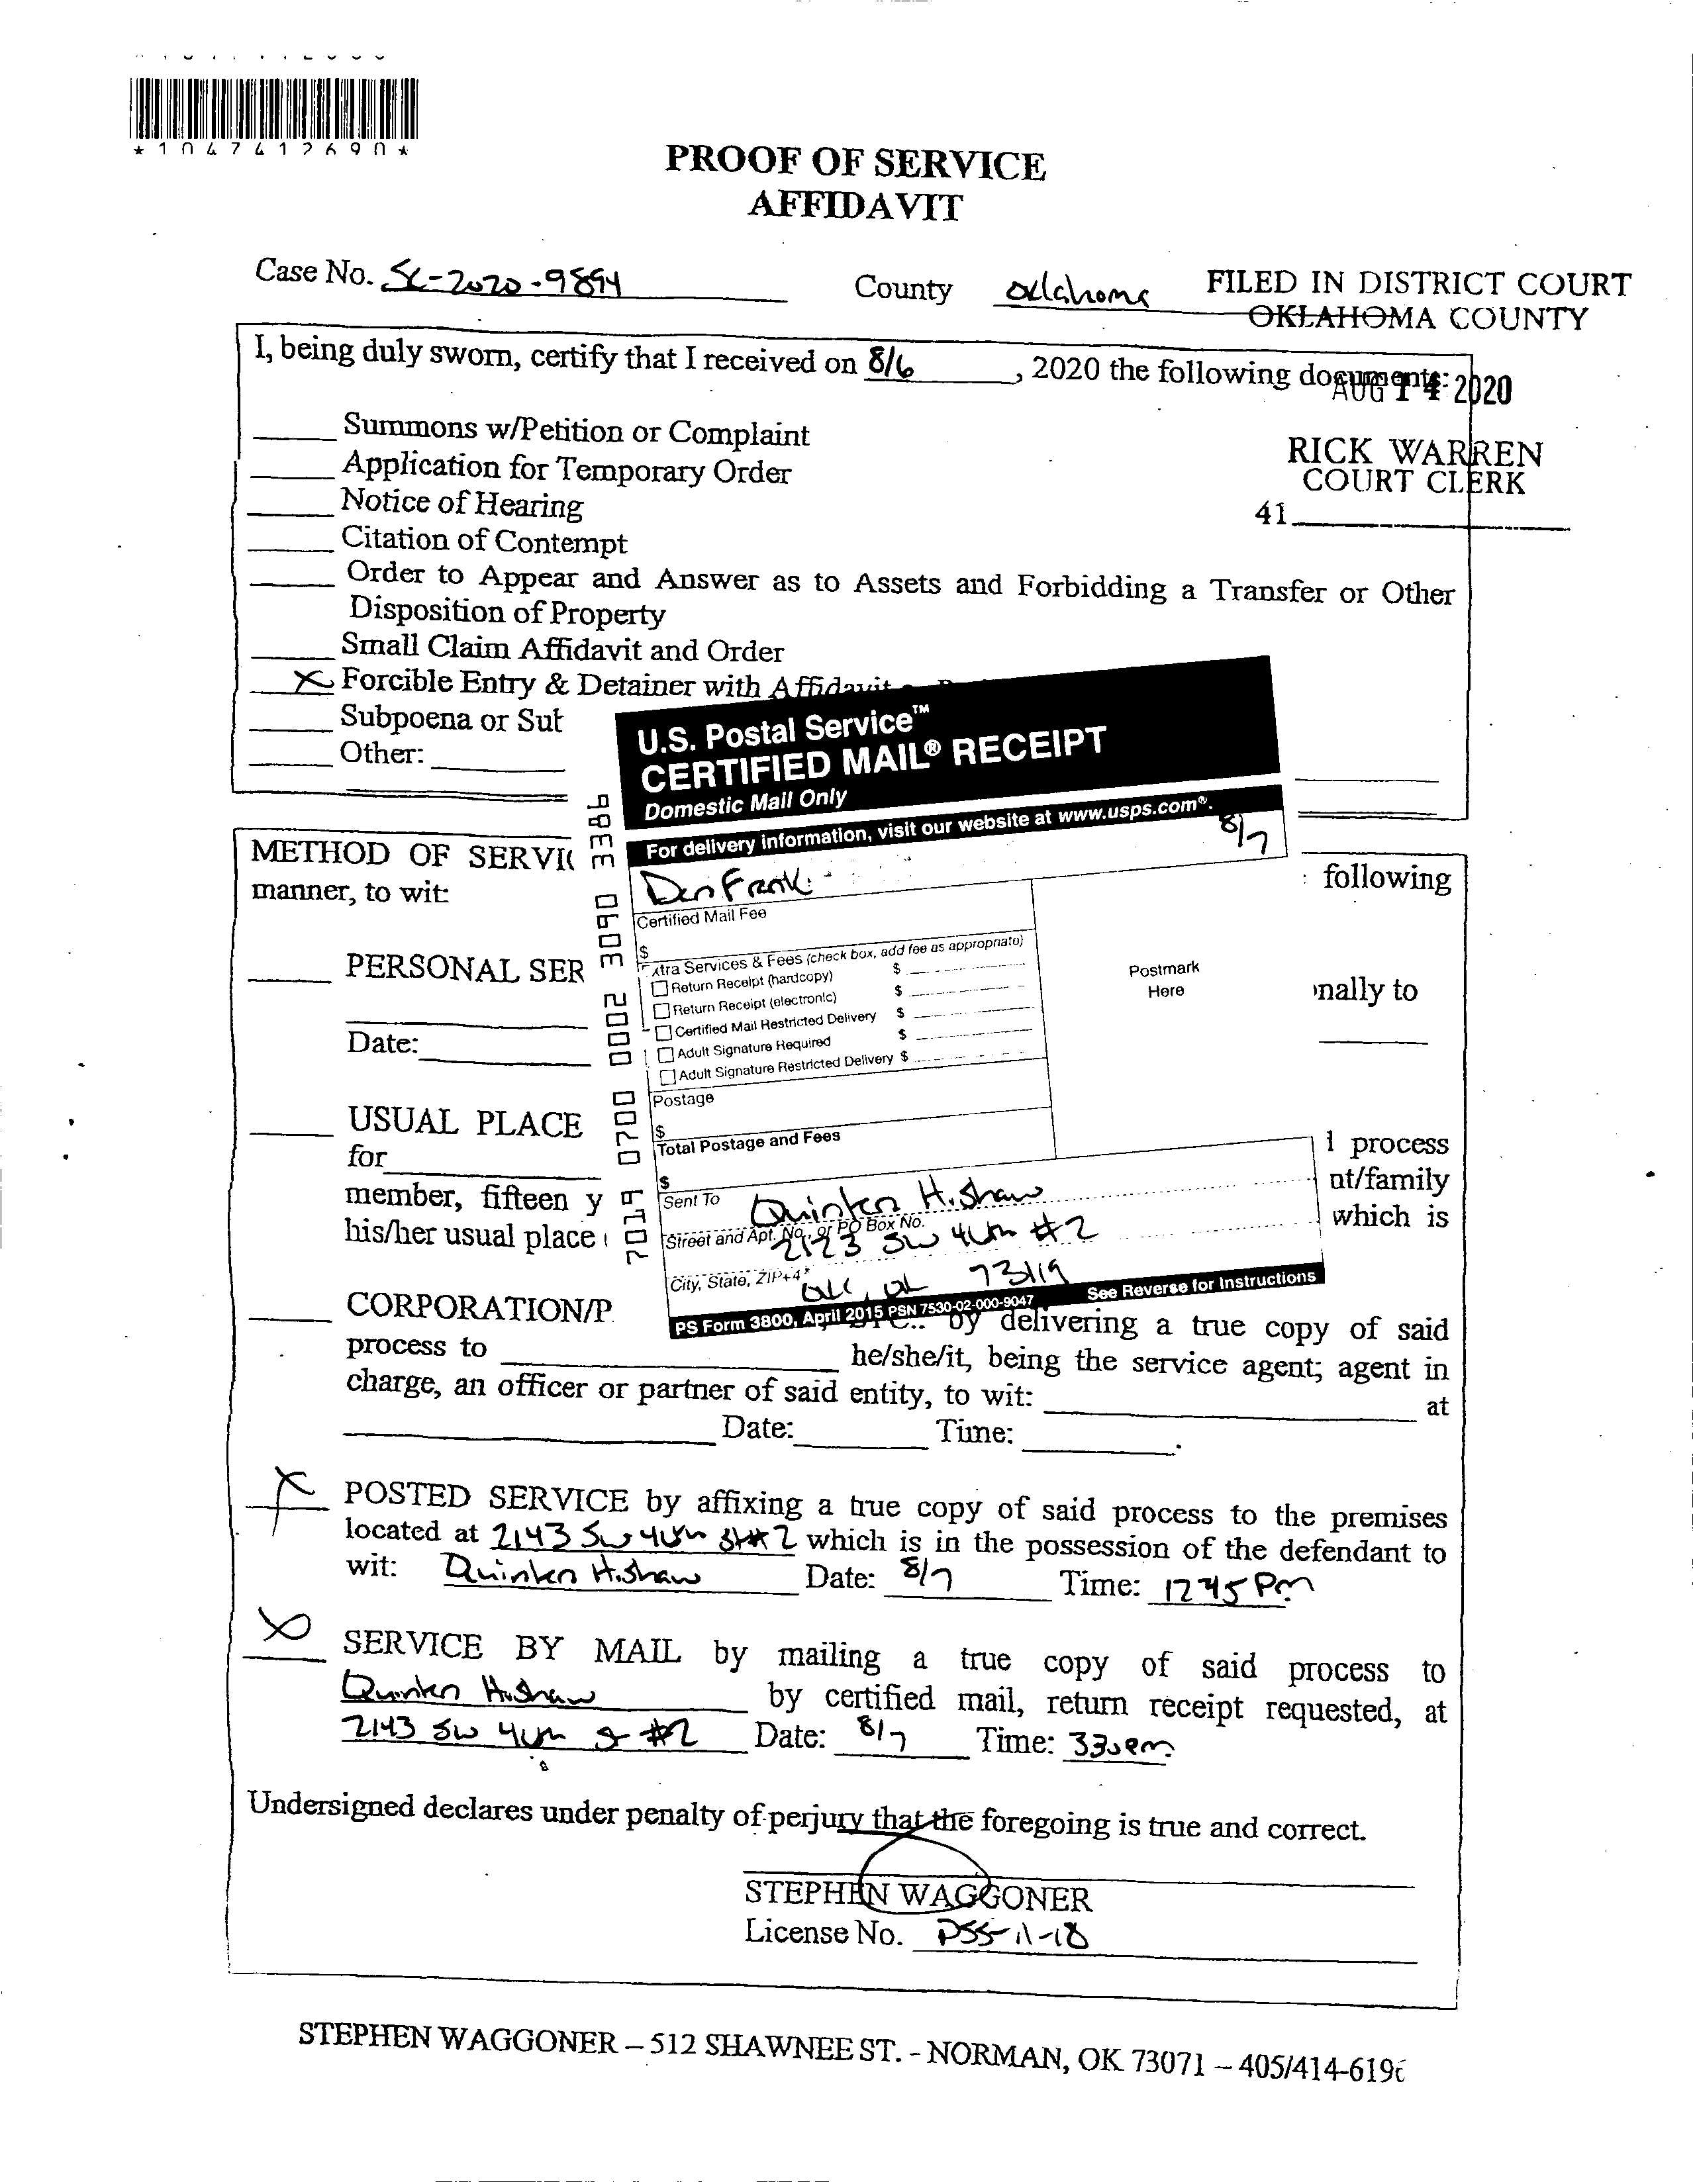 *1047412690*
PROOF OF SERVICE
AFFIDAVIT
Case No. SC-2020-9894 County Oklahoma FILED IN DISTRICT COURT
OKLAHOMA COUNTY
I, being duly sworn, certify that I received on 8/6, 2020 the following documents:
AUG 14 2020
Summons w/Petition or Complaint
RICK WARREN
Application for Temporary Order
COURT CLERK
Notice of Hearing
41
Citation of Contempt
Order to Appear and Answer as to Assets and Forbidding a Transfer or Other
Disposition of Property
Small Claim Affidavit and Order
X Forcible Entry & Detainer with Affidavit
Subpoena or Sub
Other:
U.S. Postal Service™
CERTIFIED MAIL® RECEIPT
Domestic Mail Only
For delivery information, visit our website at www.usps.com®.
8/7
Certified Mail Fee
$
Extra Services & Fees (check box, add fee as appropriate)
Return Receipt (hardcopy) $
Return Receipt (electronic) $
Certified Mail Restricted Delivery $
Adult Signature Required $
Adult Signature Restricted Delivery $
Postmark
Here
Postage
$
Total Postage and Fees
$
Sent To Quinten H.shaw
Street and Apt. No., or PO Box No. 2123 SW #2
City, State, ZIP+4® OKC, OK 73119
PS Form 3800, April 2015 PSN 7530-02-000-9047 See Reverse for Instructions
7019 0700 0002 3090 3389
METHOD OF SERVI following
manner, to wit:
PERSONAL SER nally to
Date:
USUAL PLACE l process
for nt/family
member, fifteen y which is
his/her usual place
CORPORATION/P by delivering a true copy of said
process to he/she/it, being the service agent; agent in
charge, an officer or partner of said entity, to wit: at
Date: Time: .
X POSTED SERVICE by affixing a true copy of said process to the premises
located at 2143 SW St #2 which is in the possession of the defendant to
wit: Quinten H.shaw Date: 8/7 Time: 1245 PM
X SERVICE BY MAIL by mailing a true copy of said process to
Quinten H.shaw by certified mail, return receipt requested, at
2143 SW St #2 Date: 8/7 Time: 330 pm
Undersigned declares under penalty of perjury that the foregoing is true and correct.
STEPHEN WAGGONER
License No. PSS-11-18
STEPHEN WAGGONER – 512 SHAWNEE ST. - NORMAN, OK 73071 – 405/414-619